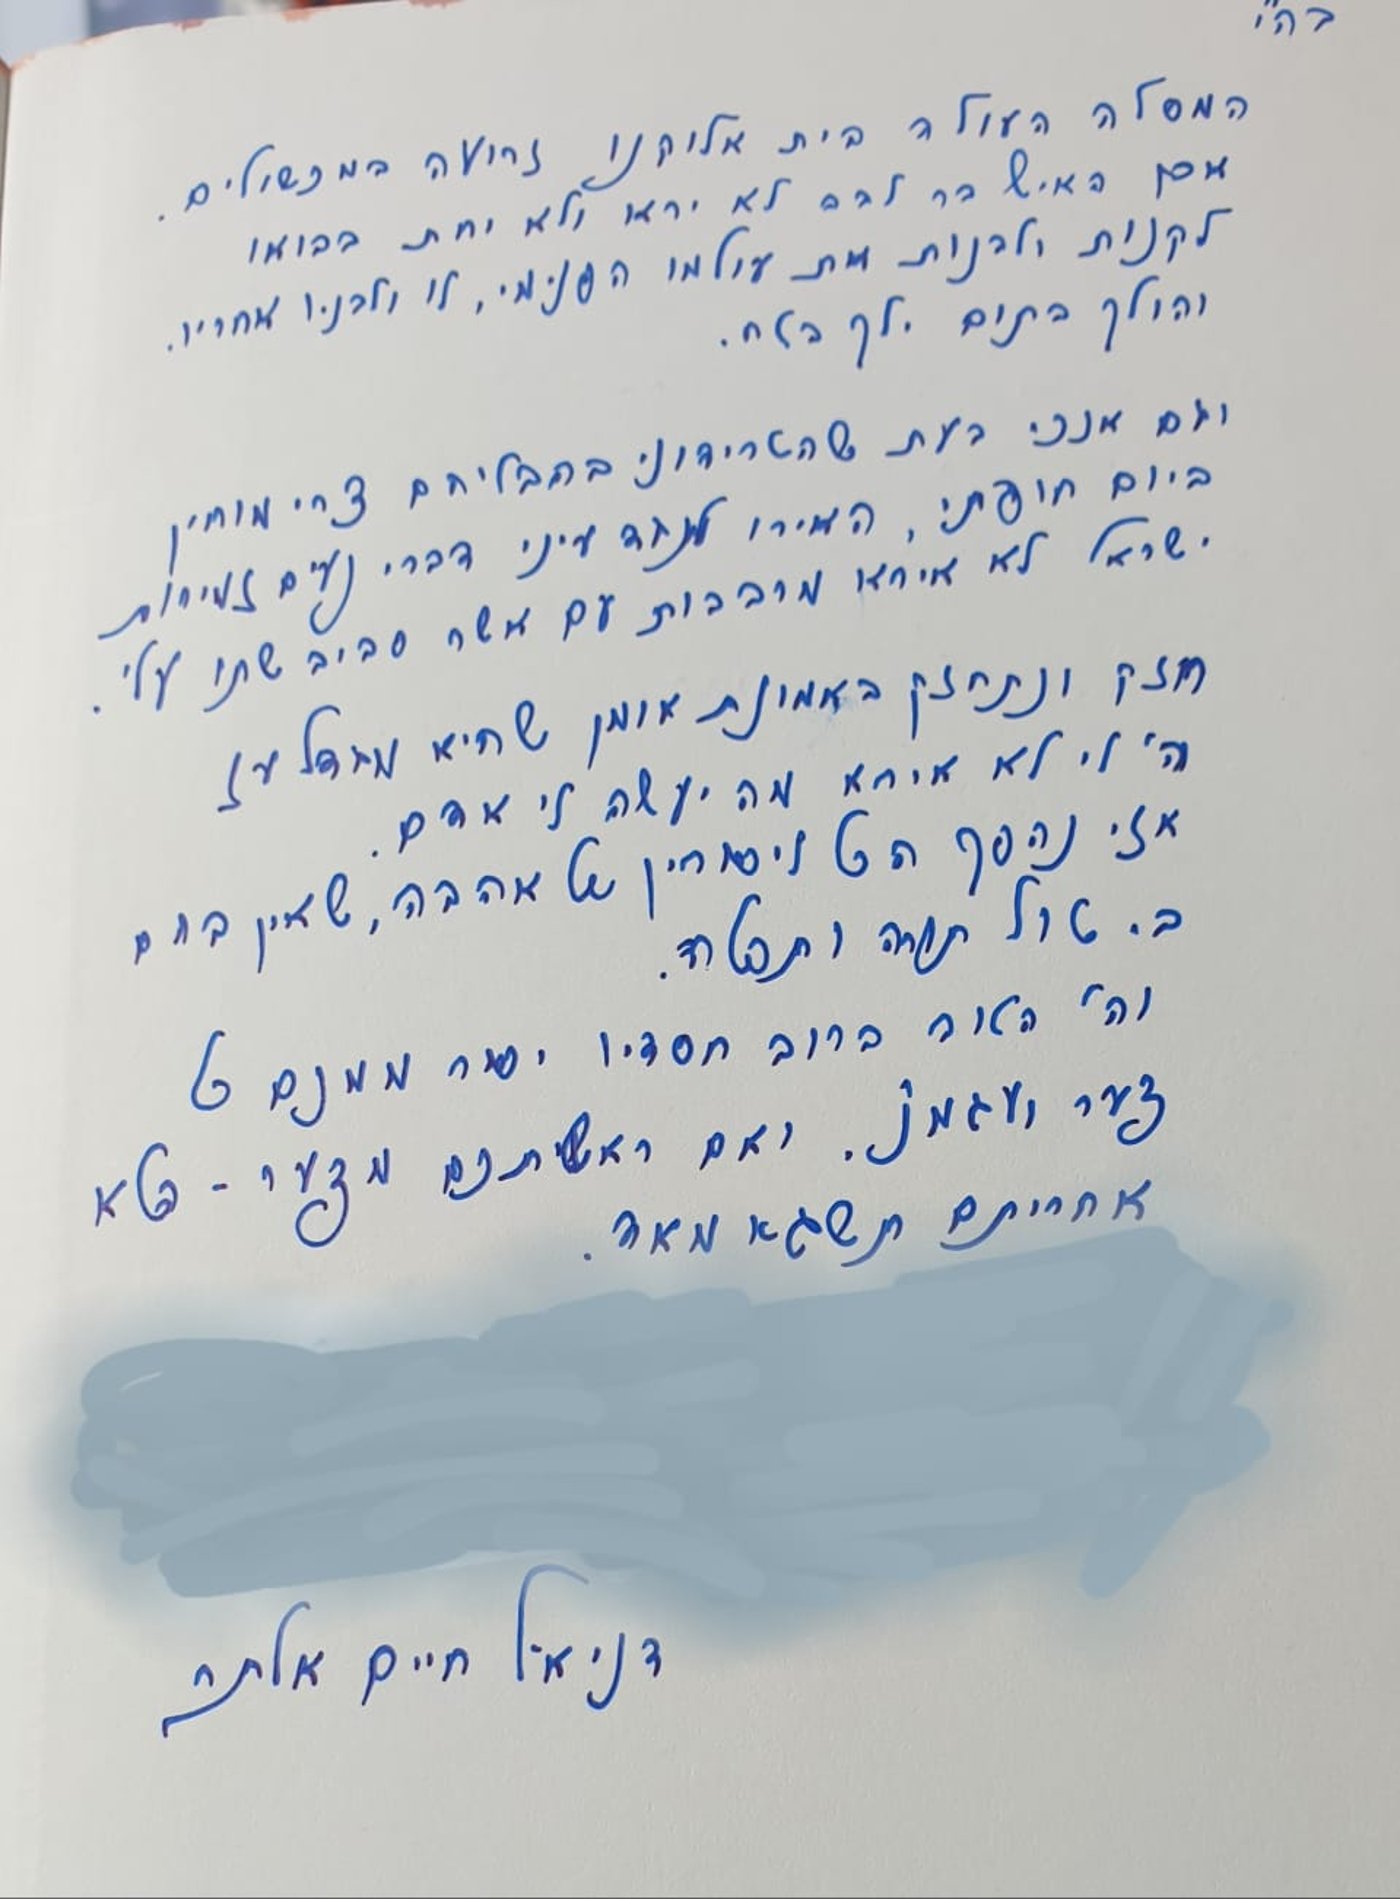 בה"י
המסלה העולה בית אלוקנו זרועה במכשולים.
אכן האיש בר לבב לא ירא ולא יחת בבואו
לקנות ולבנות את עולמו הפנימי, לו ולבניו אחריו.
והולך בתום ילך בטח.
וגם אנכי בעת שהטרידוני בהבליהם צרי מוחין
ביום חופתי, האירו לנגד עיני דברי נעים זמירות
ישראל לא אירא מרבבות עם אשר סביב שתו עלי.
חזק ונתחזק באמונת אומן שהיא מגדל עז
וה' לי לא אירא מה יעשה לי אדם.
אזי נהפך הכל ליסורין של אהבה, שאין בהם
ביטול תורה ותפלה.
וה' הטוב ברוב חסדיו יסיר ממנם כל
צער ועגמ"נ. ואם ראשיתכם מצער - פלא
אחריתם תשגא מאד.
דניאל חיים אלתר